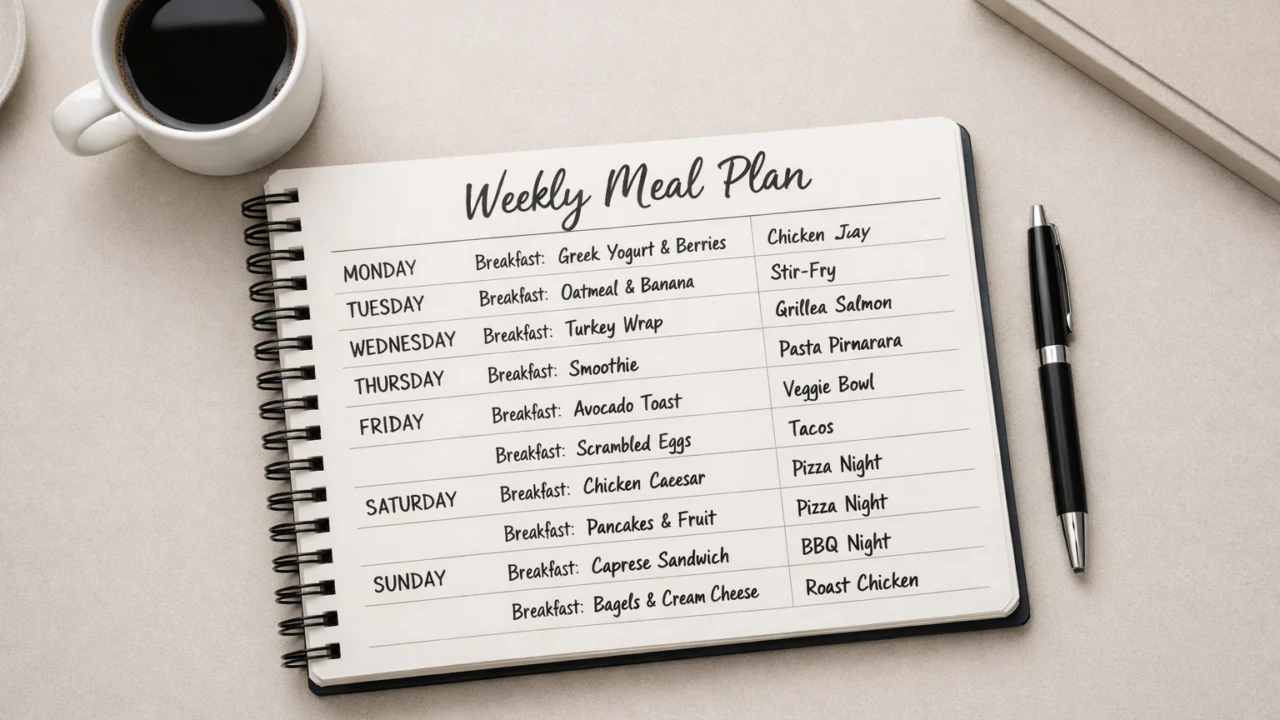 Weekly Meal Plan
MONDAY Breakfast: Greek Yogurt & Berries Chicken
TUESDAY Breakfast: Oatmeal & Banana Stir-Fry
WEDNESDAY Breakfast: Turkey Wrap Grillea Salmon
THURSDAY Breakfast: Smoothie Pasta Pirnarara
FRIDAY Breakfast: Avocado Toast Veggie Bowl
Breakfast: Scrambled Eggs Tacos
SATURDAY Breakfast: Chicken Caeesar Pizza Night
Breakfast: Pancakes & Fruit Pizza Night
SUNDAY Breakfast: Caprese Sandwich BBQ Night
Breakfast: Bagels & Cream Cheese Roast Chicken